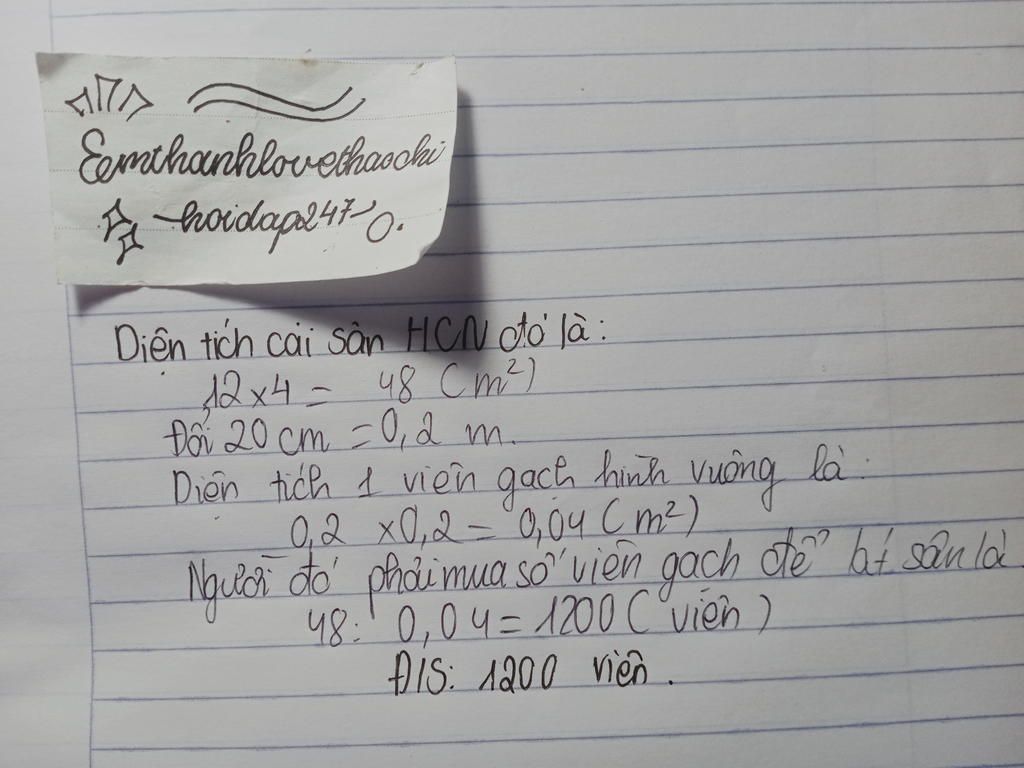 Eemthanhlovethaochi
hoidap247
Diện tích cái sân HCN đó là:
12 x 4 = 48 (m²)
Đổi 20 cm = 0,2 m.
Diện tích 1 viên gạch hình vuông là:
0,2 x 0,2 = 0,04 (m²)
Người đó phải mua số viên gạch để lát sân là
48 : 0,04 = 1200 ( viên )
Đ/S: 1200 viên.